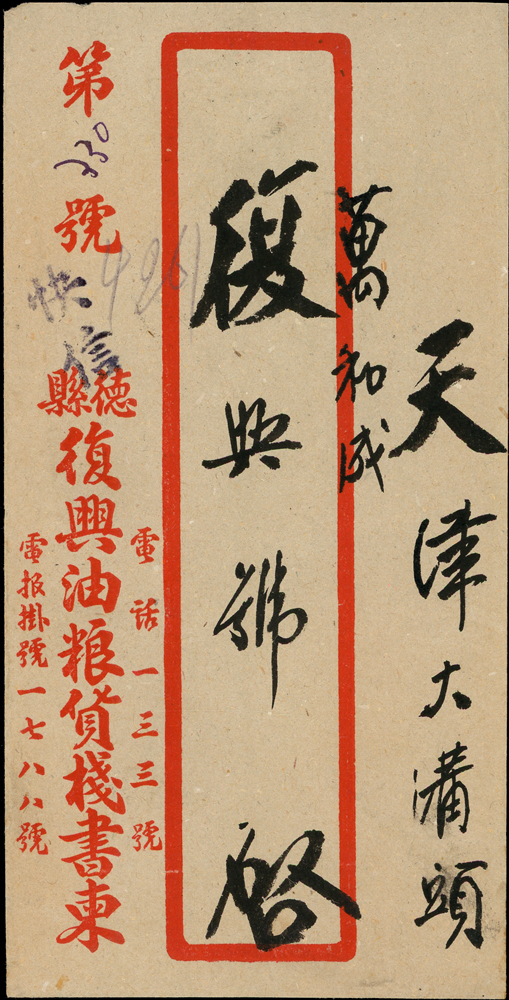 天津大溝頭
萬和成
復興號 啓
電話一三三號
德縣
復興油粮貨棧書柬
電报掛號一七八八號
第230號
快信
4261